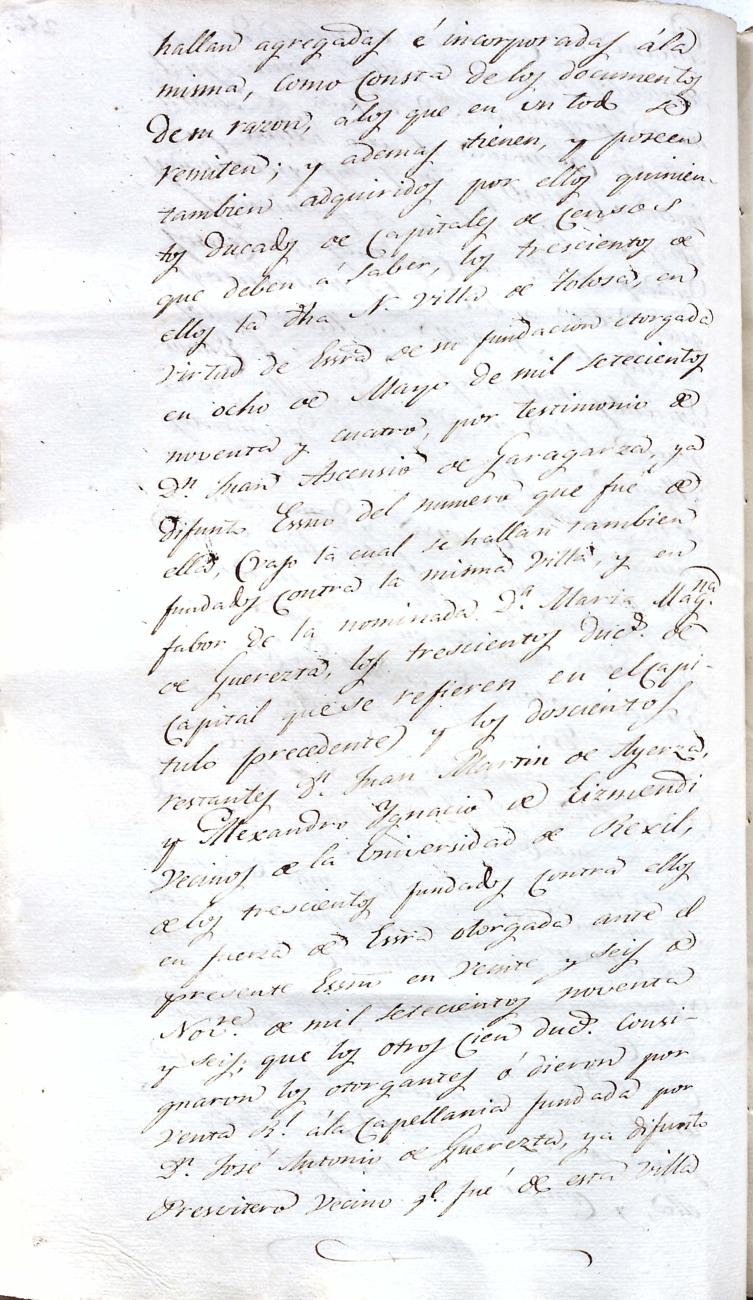 hallan agregadas é incorporadas ála
misma, como Consta de los documentos
de su razon, álos que en un todo se
remiten; y ademas tienen, y poseen
tambien adquiridos por ellos quinien-
tos Ducados de Capitales de Censos
que deben á saber, los trescientos de
ellos la dha N. Villa de Tolosa, en
virtud de Essrâ de su fundacion otorgada
en ocho de Mayo de mil setecientos
noventa y cuatro, por testimonio de
Dn. Juan Ascensio de Garagarza, ya
difunto Essno del numero que fué de
ella, (vajo la cual se hallan tambien
fundados contra la misma Villa, y en
fabor de la nominada Da. Maria Magna.
de Guerezta, los trescientos Ducds. de
Capital que se refieren en el Capi-
tulo precedente) y los doscientos
restantes Dn. Juan Martin de Ayerza,
y Alexandro Ygnacio de Eizmendi
Vecinos de la Universidad de Rexil,
de los trescientos fundados contra ellos
en fuerza de Essrâ otorgada ante el
presente Essno en Veinte y seis de
Novre. de mil setecientos noventa
y seis, que los otros Cien Ducs. Consi-
gnaron los otorgantes ó dieron por
Venta Rl. ála Capellania fundada por
Dn. José Antonio de Guerezta, ya difunto
Presvitero Vecino qe. fué de esta Villa